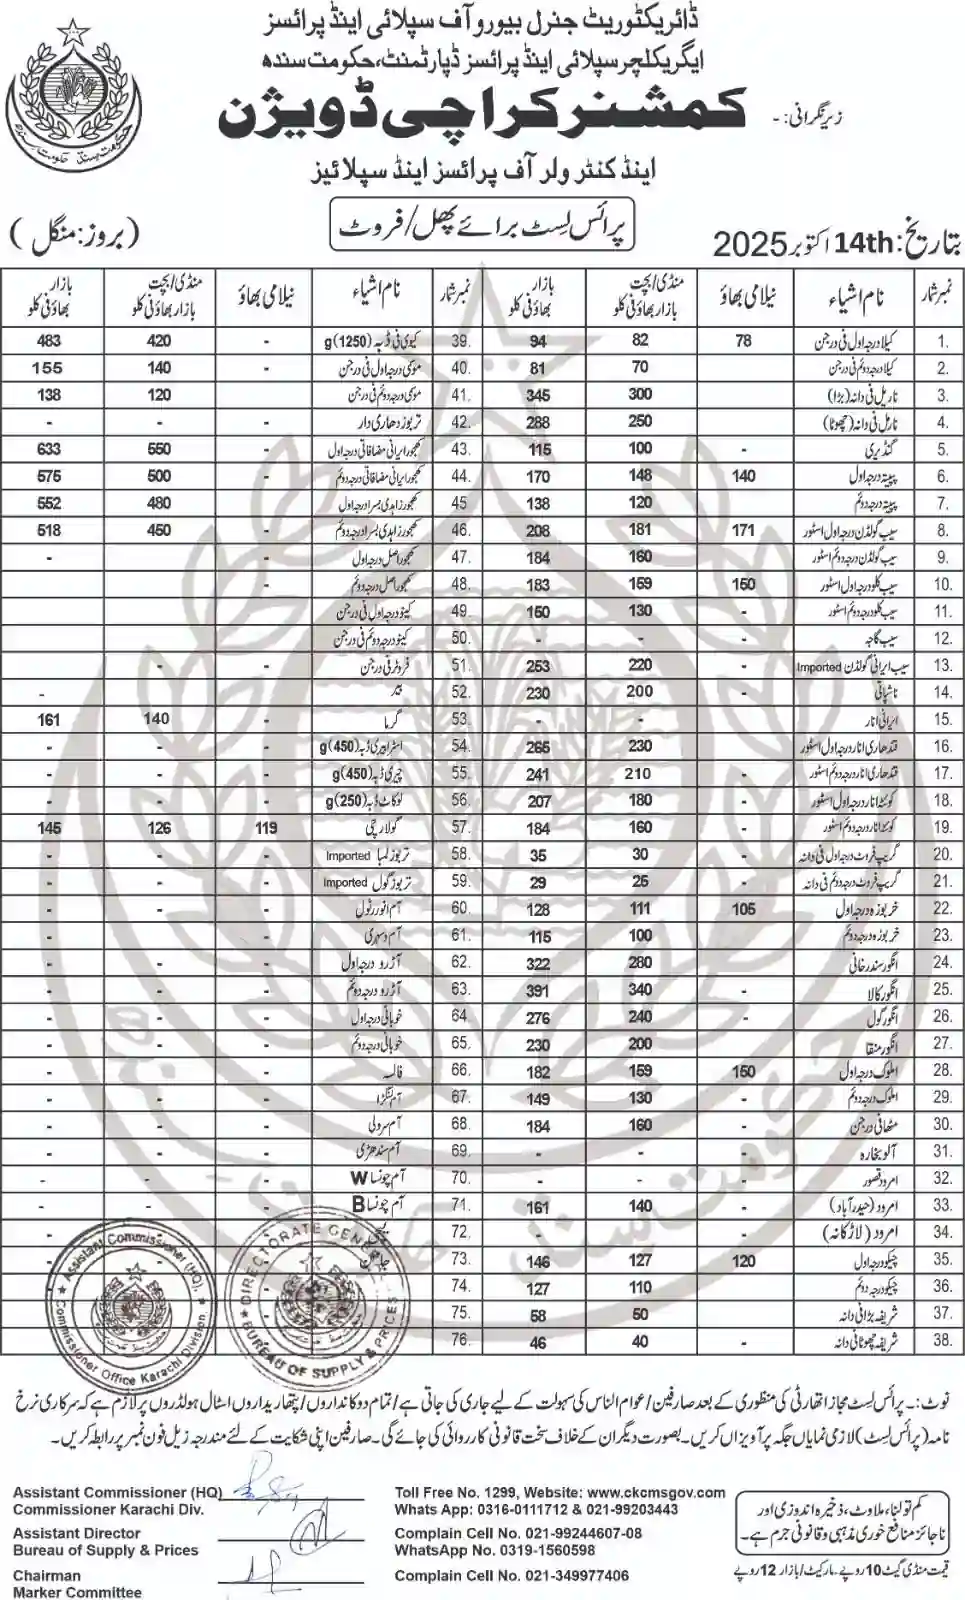 ڈائریکٹوریٹ جنرل بیورو آف سپلائی اینڈ پرائسز
ایگریکلچر سپلائی اینڈ پرائسز ڈپارٹمنٹ، حکومت سندھ
زیر نگرانی: - کمشنر کراچی ڈویژن
اینڈ کنٹرولر آف پرائسز اینڈ سپلائیز
پرائس لسٹ برائے پھل/فروٹ
بتاریخ: 14th اکتوبر 2025
(بروز: منگل)
نمبر شمار نام اشیاء نیلامی بھاؤ منڈی/بچت بازار بھاؤ فی کلو بازار بھاؤ فی کلو
1. کیلا درجہ اول فی درجن 78 82 94
2. کیلا درجہ دوئم فی درجن 70 81
3. ناریل فی دانہ (بڑا) 300 345
4. ناریل فی دانہ (چھوٹا) 250 288
5. گنڈیری - 100 115
6. پپیتہ درجہ اول 140 148 170
7. پپیتہ درجہ دوئم 120 138
8. سیب گولڈن درجہ اول اسٹور 171 181 208
9. سیب گولڈن درجہ دوئم اسٹور 160 184
10. سیب کلو درجہ اول اسٹور 150 159 183
11. سیب کلو درجہ دوئم اسٹور 130 150
12. سیب گاچہ - - -
13. سیب ایرانی گولڈن Imported - 220 253
14. ناشپاتی 200 230
15. ایرانی انار - - -
16. قندھاری انار درجہ اول اسٹور 230 265
17. قندھاری انار درجہ دوئم اسٹور - 210 241
18. کوئٹہ انار درجہ اول اسٹور 180 207
19. کوئٹہ انار درجہ دوئم اسٹور - 160 184
20. گریپ فروٹ درجہ اول فی دانہ 30 35
21. گریپ فروٹ درجہ دوئم فی دانہ 25 29
22. خربوزہ درجہ اول 105 111 128
23. خربوزہ درجہ دوئم 100 115
24. انگور سندرخانی 280 322
25. انگور کالا - 340 391
26. انگور گول - 240 276
27. انگور منقا 200 230
28. املوک درجہ اول 150 159 182
29. املوک درجہ دوئم 130 149
30. مٹھا فی درجن - 160 184
31. آلو بخارہ - - -
32. امرود قصور - - -
33. امرود (حیدرآباد) - 140 161
34. امرود (لاڑکانہ) - - -
35. چیکو درجہ اول 120 127 146
36. چیکو درجہ دوئم 110 127
37. شریفہ بڑا فی دانہ 50 58
38. شریفہ چھوٹا فی دانہ - 40 46
نمبر شمار نام اشیاء نیلامی بھاؤ منڈی/بچت بازار بھاؤ فی کلو بازار بھاؤ فی کلو
39. کیوی فی ڈبہ (1250)g - 420 483
40. موسمی درجہ اول فی درجن - 140 155
41. موسمی درجہ دوئم فی درجن - 120 138
42. تربوز دھاری دار - - -
43. کھجور ایرانی مضافاتی درجہ اول - 550 633
44. کھجور ایرانی مضافاتی درجہ دوئم - 500 575
45. کھجور زاہدی بسرا درجہ اول - 480 552
46. کھجور زاہدی بسرا درجہ دوئم - 450 518
47. کھجور اصل درجہ اول - -
48. کھجور اصل درجہ دوئم -
49. کینو درجہ اول فی درجن
50. کینو درجہ دوئم فی درجن
51. فروٹر فی درجن - -
52. بیر -
53. گرما - 140 161
54. اسٹرابیری ڈبہ (450)g - - -
55. چیری ڈبہ (450)g - - -
56. لوکاٹ ڈبہ (250)g - - -
57. گولارچی 119 126 145
58. تربوز لمبا Imported - - -
59. تربوز گول Imported - - -
60. آم انور رٹول - - -
61. آم دسہری - - -
62. آڑرو درجہ اول - - -
63. آڑرو درجہ دوئم - - -
64. خوبانی درجہ اول - - -
65. خوبانی درجہ دوئم - - -
66. فالسہ - - -
67. آم لنگڑا - - -
68. آم سرولی - - -
69. آم سندھڑی - - -
70. آم چونسا W - - -
71. آم چونسا B - - -
72.
73. جامن
74.
75.
76.
Assistant Commissioner (HQ)
Commissioner Office Karachi Division
DIRECTORATE GENERAL
BUREAU OF SUPPLY & PRICES
نوٹ: - پرائس لسٹ مجاز اتھارٹی کی منظوری کے بعد صارفین/عوام الناس کی سہولت کے لیے جاری کی جاتی ہے/تمام دوکانداروں/پتھاریداروں اسٹال ہولڈروں پر لازم ہے کہ سرکاری نرخ
نامہ (پرائس لسٹ) لازمی نمایاں جگہ پر آویزاں کریں۔ بصورت دیگر ان کے خلاف سخت قانونی کارروائی کی جائے گی۔ صارفین اپنی شکایت کے لئے مندرجہ زیل فون نمبر پر رابطہ کریں۔
Assistant Commissioner (HQ)
Commissioner Karachi Div.
Assistant Director
Bureau of Supply & Prices
Chairman
Marker Committee
Toll Free No. 1299, Website: www.ckcmsgov.com
Whats App: 0316-0111712 & 021-99203443
Complain Cell No. 021-99244607-08
WhatsApp No. 0319-1560598
Complain Cell No. 021-349977406
کم تولنا، ملاوٹ، ذخیرہ اندوزی اور
ناجائز منافع خوری مذہبی و قانونی جرم ہے۔
قیمت منڈی گیٹ 10 روپے۔ مارکیٹ/بازار 12 روپے